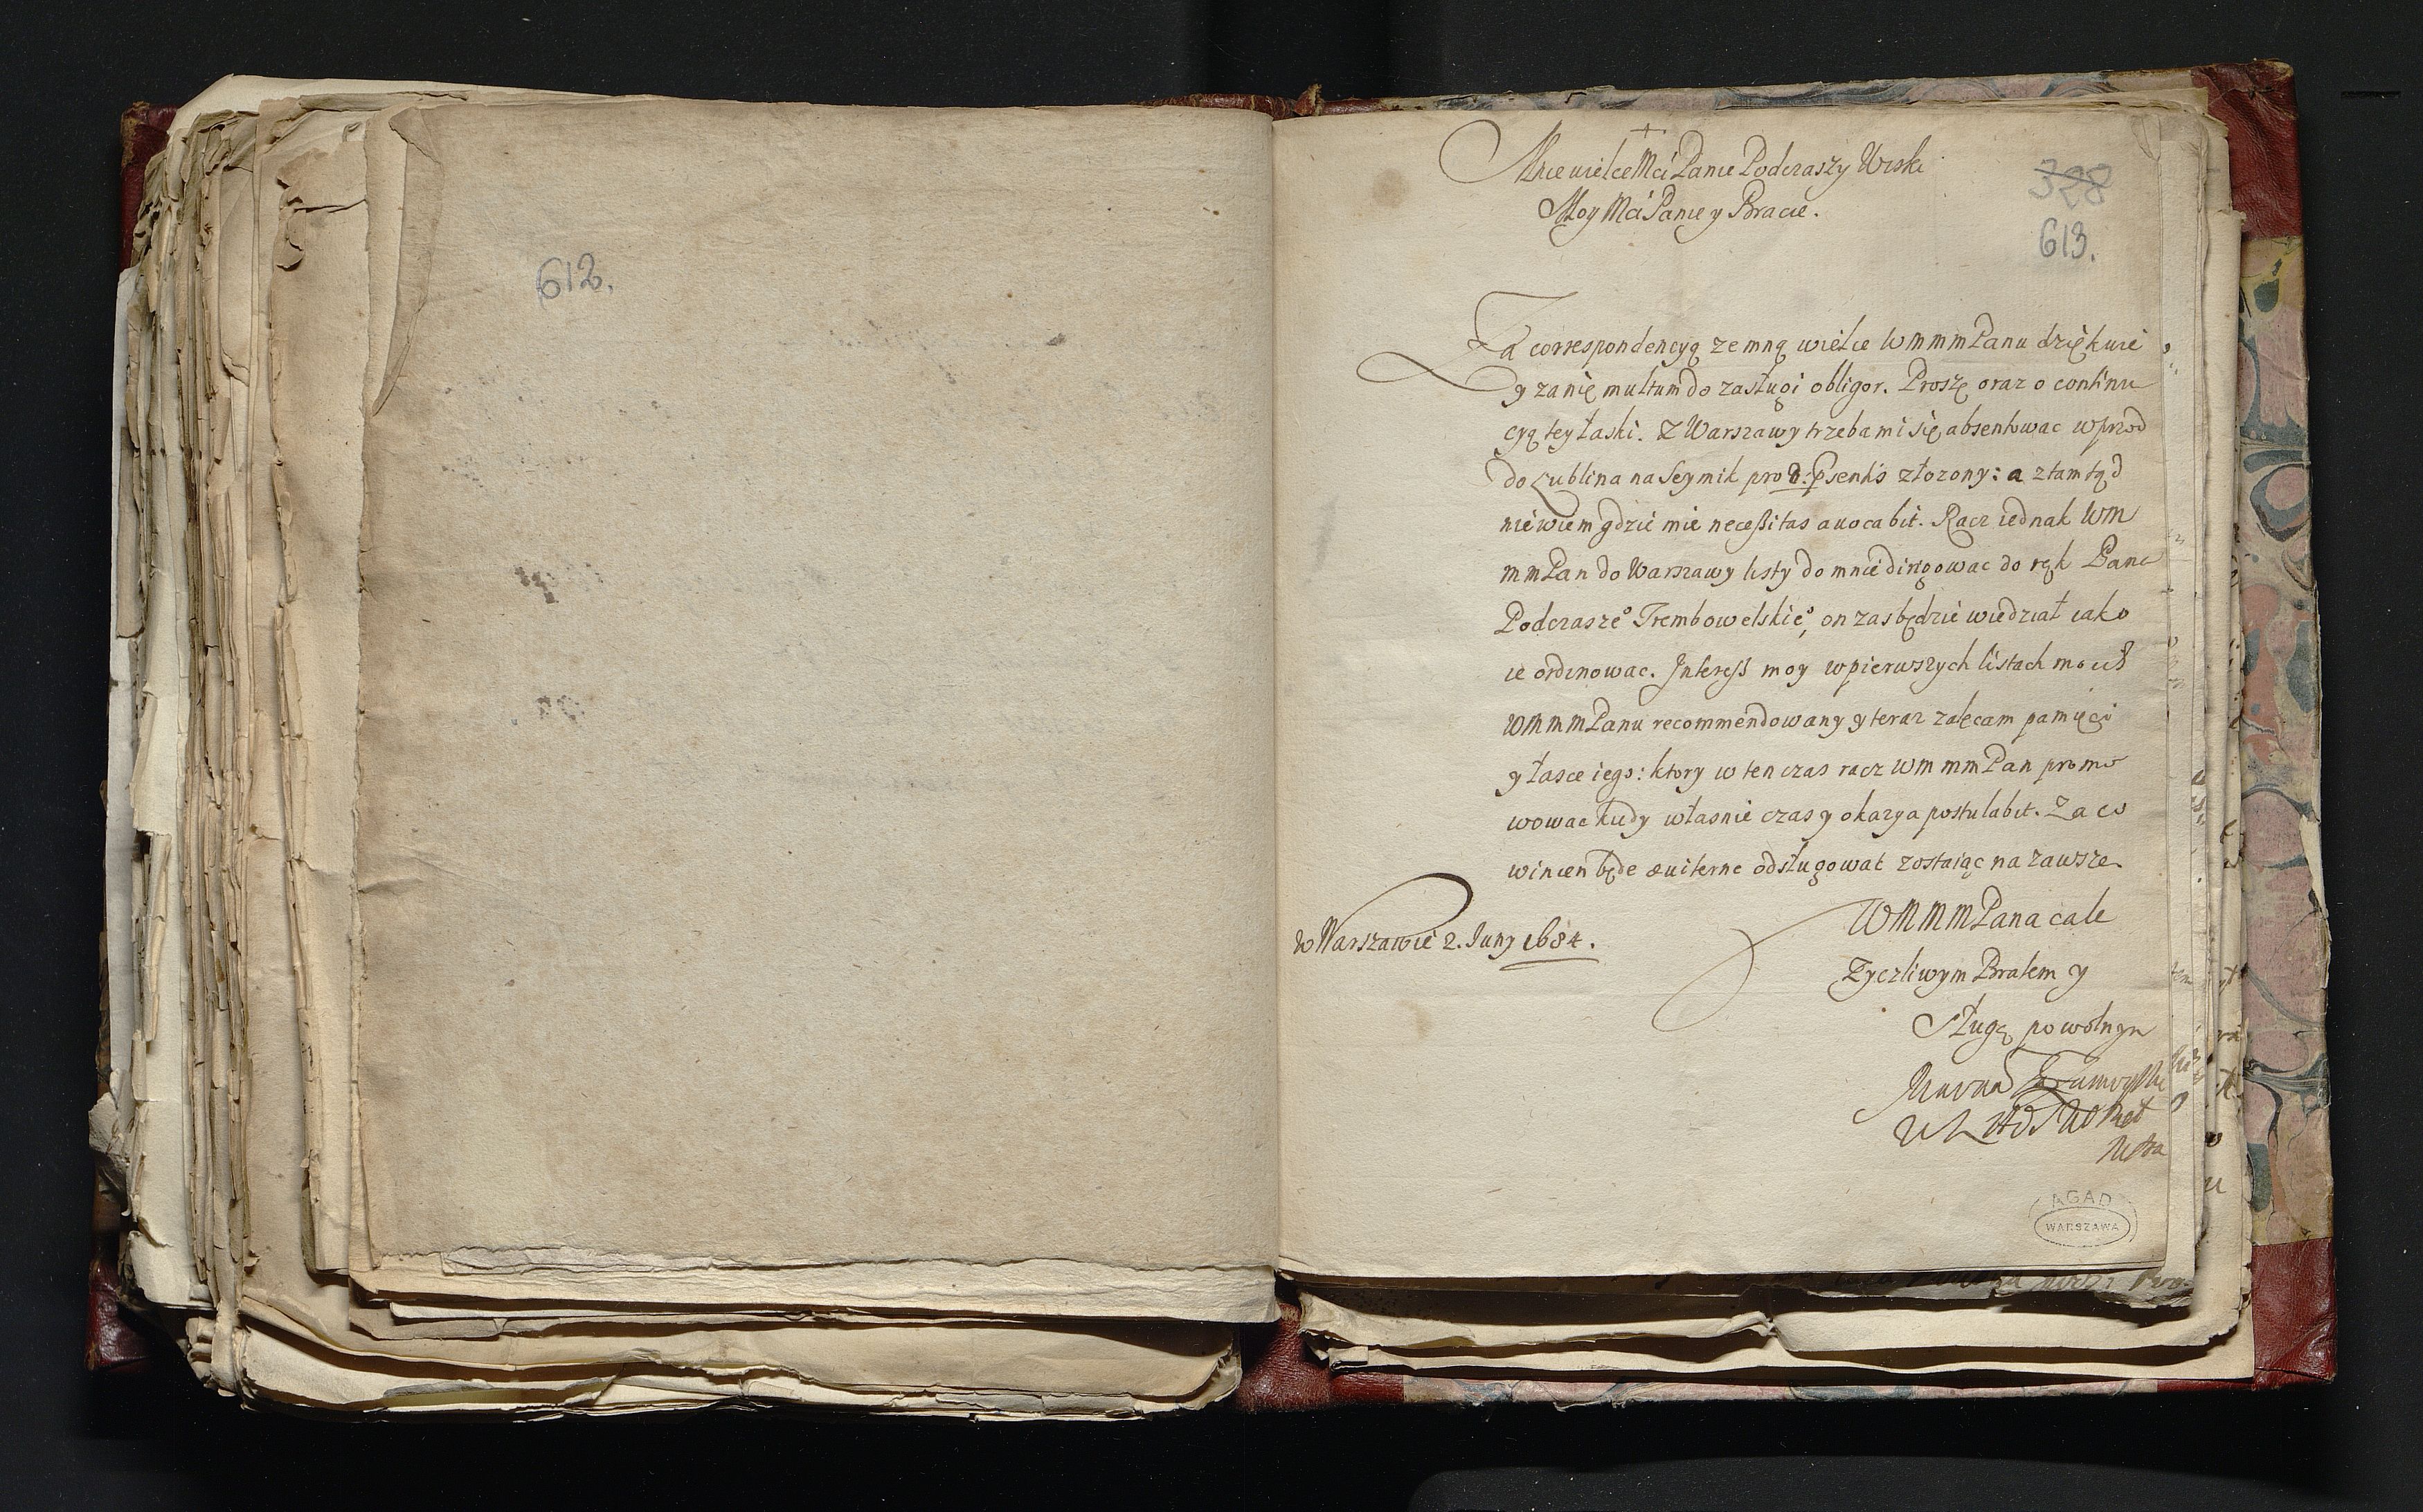 612.
+
Mnie wielce Mći Panie Podczaszy Wiski
Moy Mći Panie y Bracie.
328
613.
Za correspondencyą ze mną wielce WMMMPanu dziękuie
y za nię multum do zasługi obligor. Proszę oraz o continu
cyą tey łaski. Z Warszawy trzeba mi się absentowac wprzod
do Lublina na Seymik pro 8. psentis złozony: a ztamtąd
nie wiem gdzie mie necessitas auocabit. Racz iednak WM
mmPan do Warszawy listy do mnie dirigowac do rąk Pana
Podczasze° Trembowelskie°, on zas będzie wiedział iako
ie ordinowac. Interess moy w pierwszych listach moich
WMMMPanu recommendowany y teraz zalecam pamięci
y łasce iego: ktory w ten czas racz WM mmPan promo
wowac kiedy własnie czas y okazya postulabit. Za co
winien będe æuiterne odsługowac zostaiąc na zawsze.
WMMMPana cale
w Warszawie 2. Juny 1684.
Zyczliwym Bratem y
Sługą powolnym
AGAD
WARSZAWA